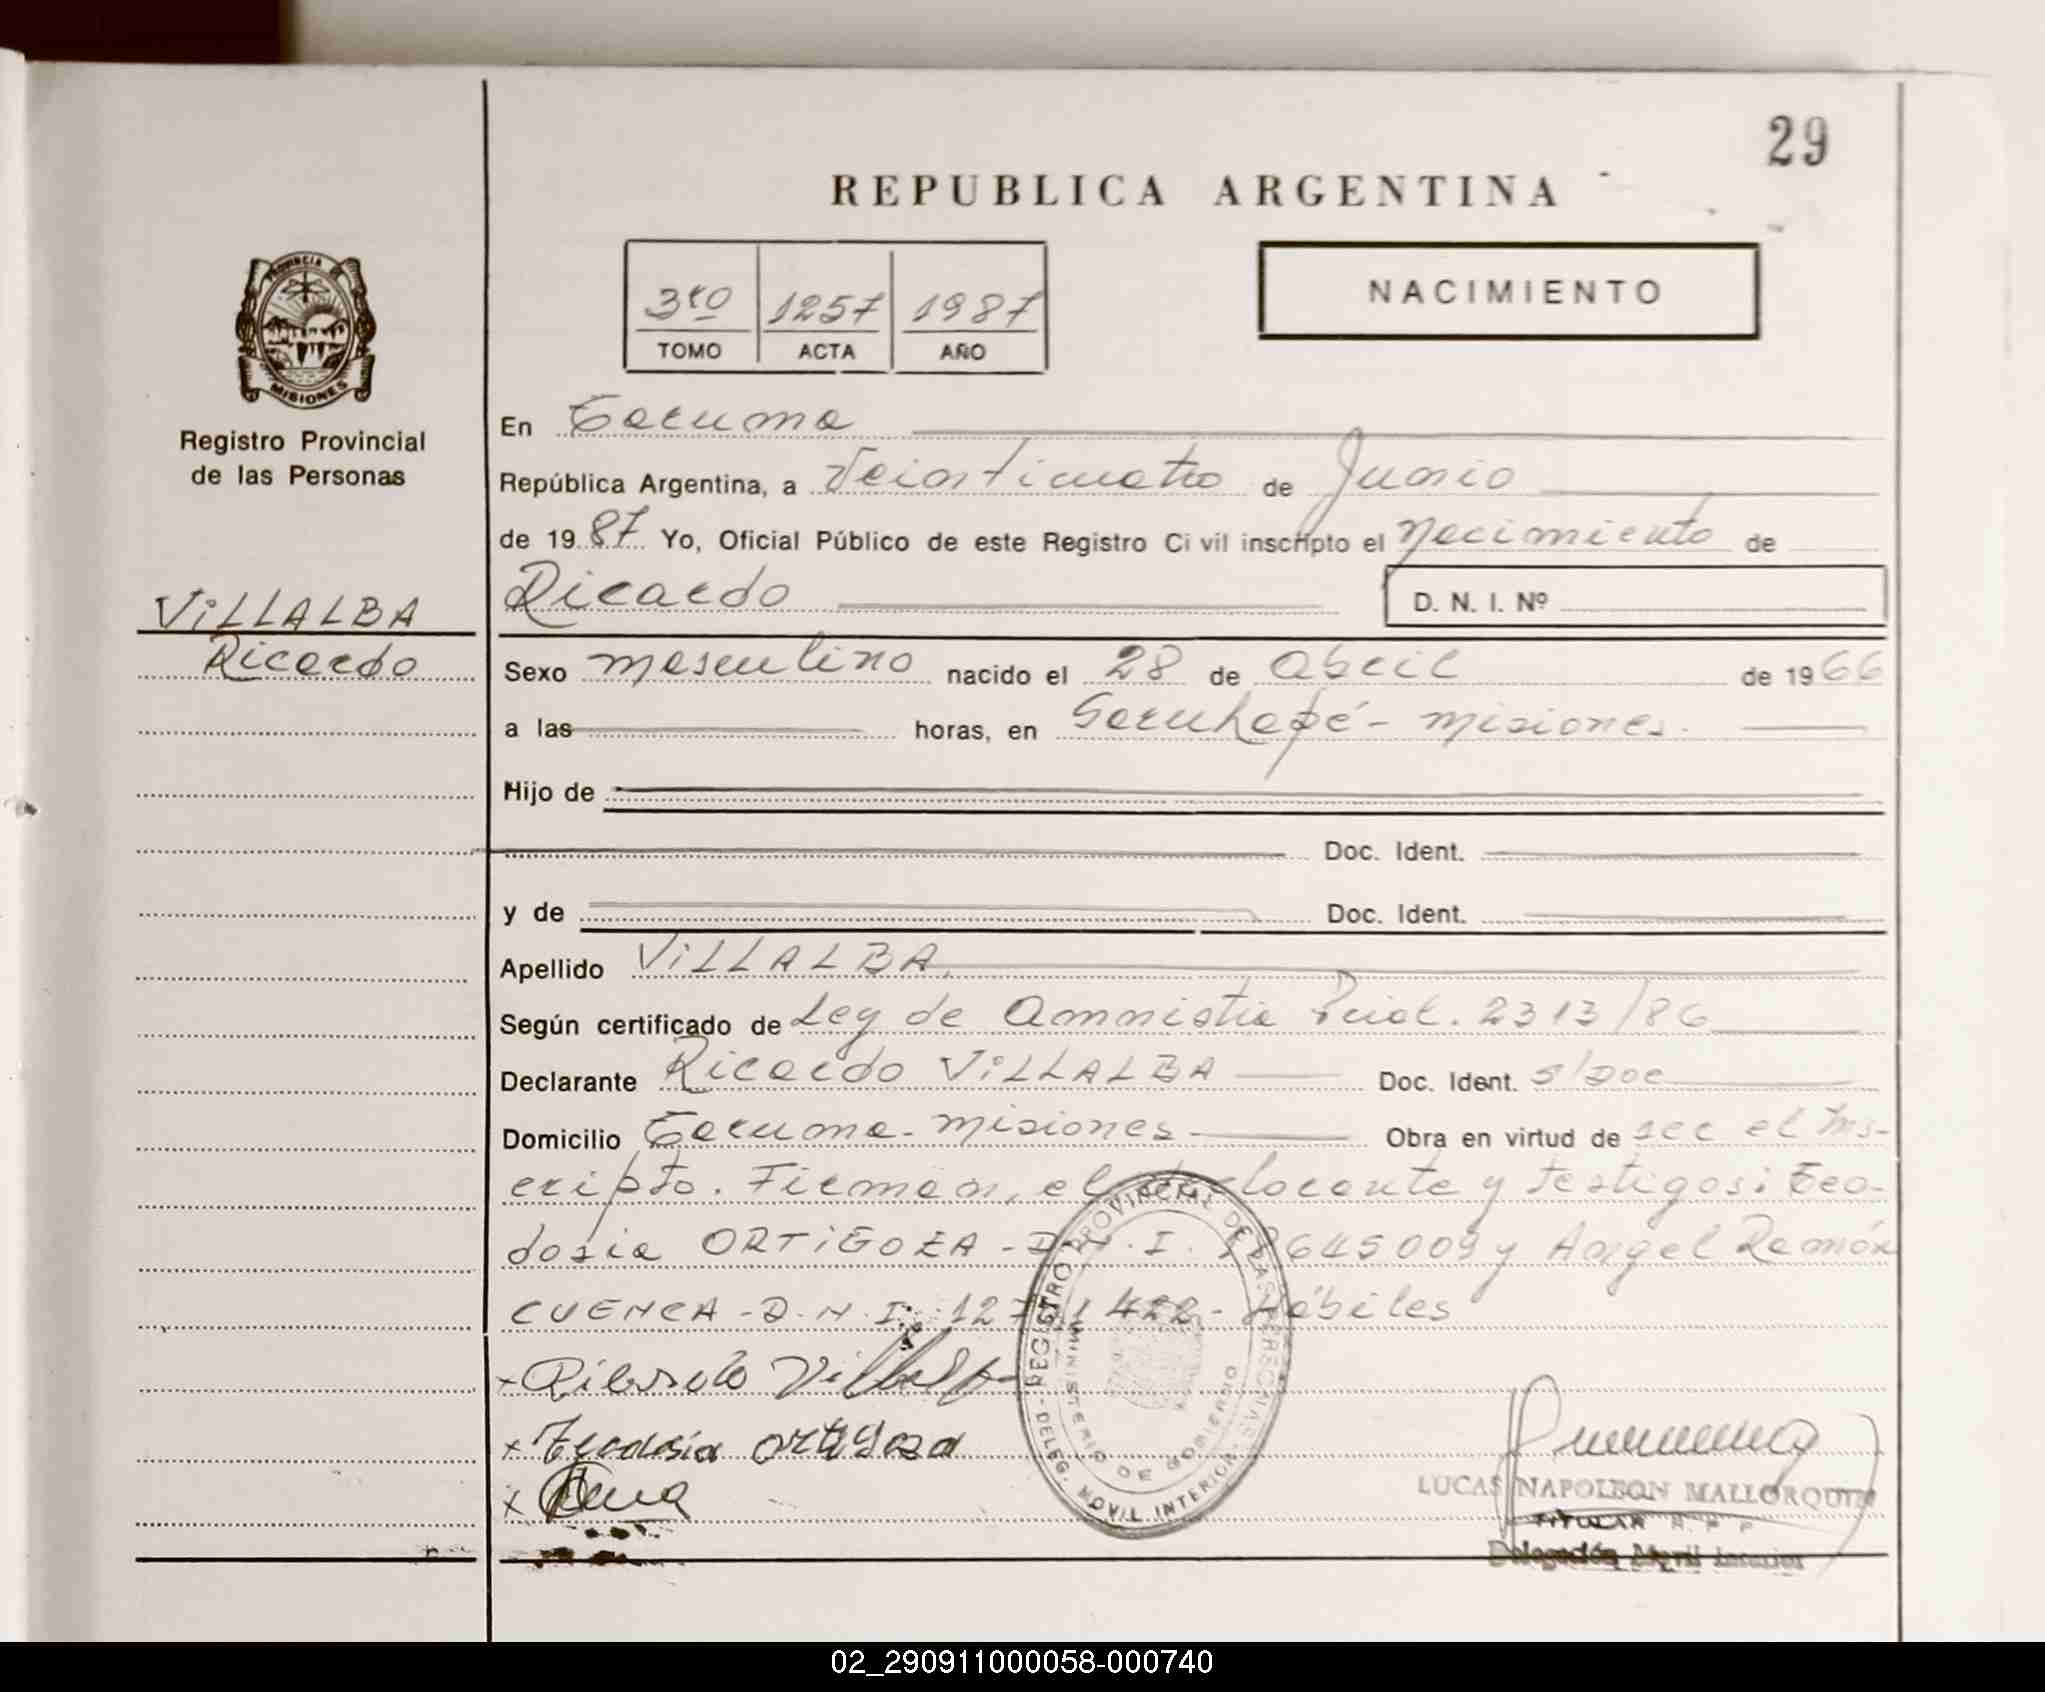 29
REPUBLICA ARGENTINA
PROVINCIA
MISIONES
Registro Provincial
de las Personas
3ro 1257 1987
TOMO ACTA AÑO
NACIMIENTO
En Tacuma
República Argentina, a Veinticuatro de Junio
de 1987 Yo, Oficial Público de este Registro Civil inscripto el Nacimiento de
Ricardo
D. N. I. Nº
VILLALBA
Ricardo
Sexo masculino nacido el 28 de Abril de 1966
a las horas, en Garuhapé - Misiones.
Hijo de
Doc. Ident.
y de Doc. Ident.
Apellido VILLALBA
Según certificado de Ley de Amnistia 2313/86
Declarante Ricardo VILLALBA Doc. Ident. s/Doc
Domicilio Tacuma - Misiones Obra en virtud de ser el Ins-
cripto. Firman, el declarante y testigos: Teo-
dosia ORTIGOZA - D.N.I. 18645009 y Angel Ramón
CUENCA - D.N.I. 422 - Hábiles
x Ricardo Villalba
x Teodosia ortigoza
x
REGISTRO PROVINCIAL DE LAS PERSONAS
MINISTERIO DE GOBIERNO
DELEG. MOVIL INTERIOR
LUCAS NAPOLEON MALLORQUIN
TITULAR R. P. P.
Delegación Movil Interior
02_290911000058-000740